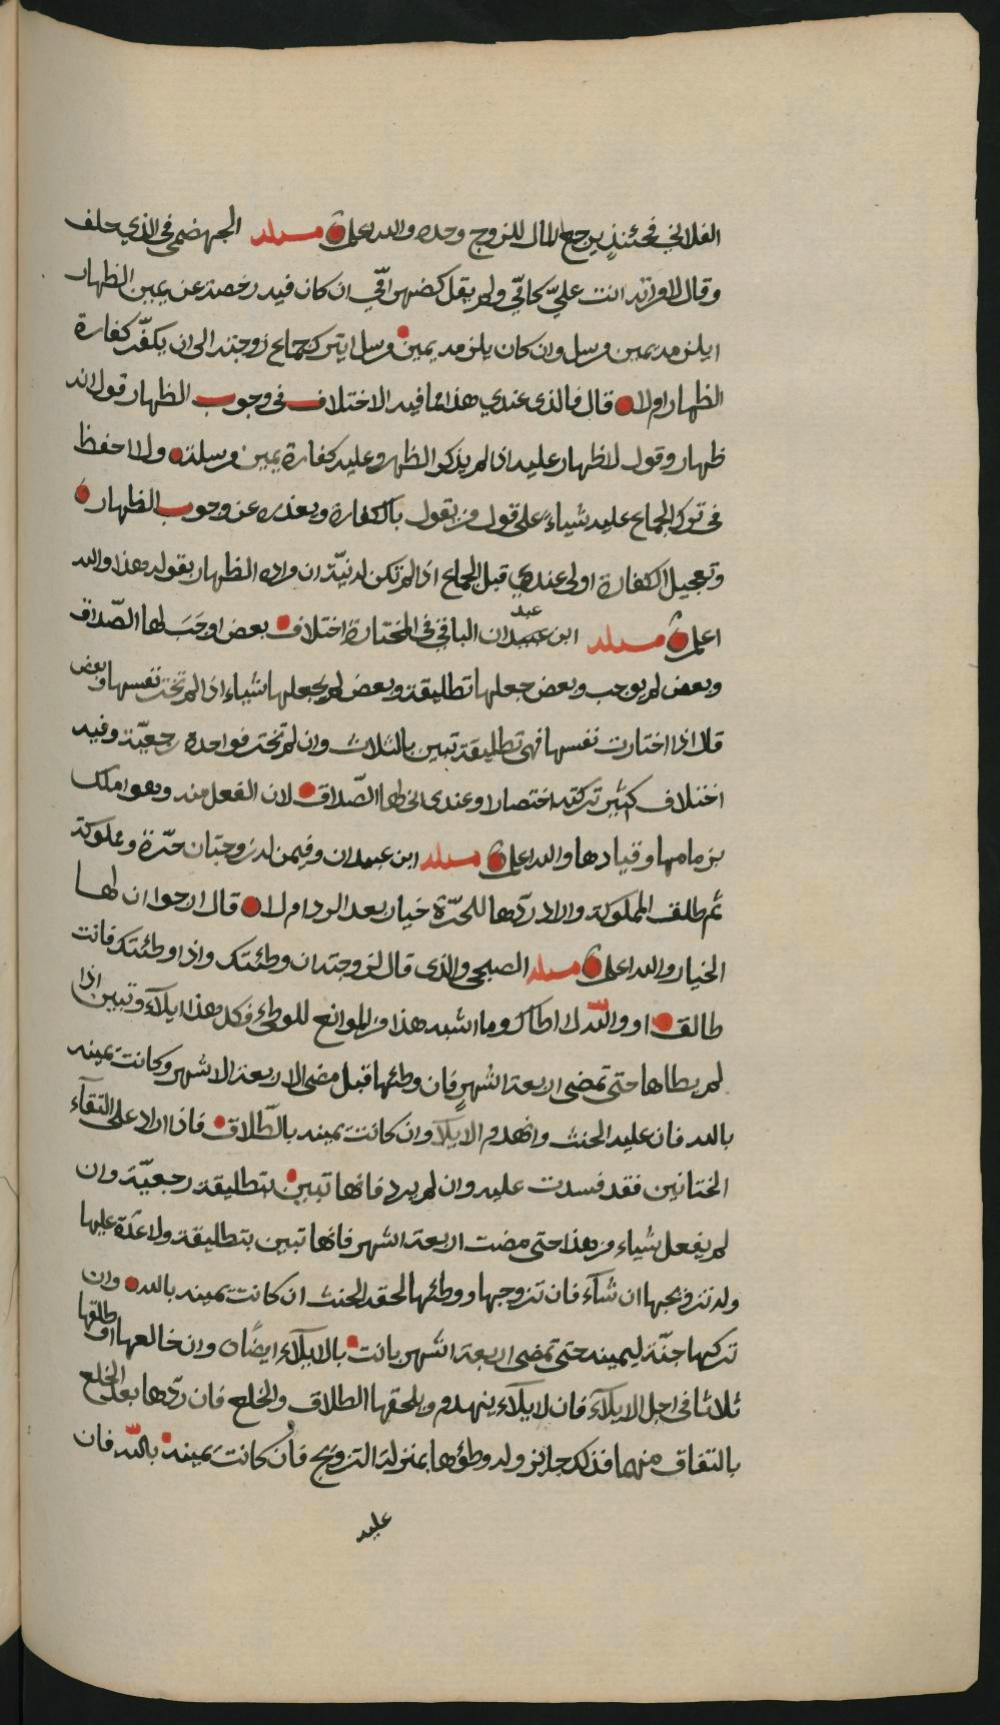 الفلاني فحينئذ يرجع المال للزوج وحده والله اعلم مسئلة الجهضمي في الذي حلف
وقال لامراته انت عليّ كامّي ولم يقل كضهر امّي ان كان فيه رخصة عن يمين الظهار
ايلزمه يمين مرسل وان كان يلزمه يمين مرسل ايترك جماع زوجته الى ان يكفّر كفارة
الظهار ام لا قال فالذي عندي هذا مما فيه الاختلاف في وجوب الظهار قول انه
ظهار وقول لا ظهار عليه اذا لم يذكر الظهر وعليه كفارة يمين مرسلة ولا احفظ
في ترك الجماع عليه شياء على قول من يقول بالكفارة ويعذره عن وجوب الظهار
وتعجيل الكفارة اولى عندي قبل الجماع اذا لم تكن له نيّة ان واده الظهار بقوله هذا والله
اعلم مسئلة ابن عبيدان الباقي في المختارة اختلاف بعض اوجَبَ لها الصّداق
وبعض لم يوجب وبعض جعلها تطليقة وبعض لم يجعلها شياء اذا لم تختر نفسها وبعض
قال اذا اختارت نفسها فهي تطليقة تبين بالثلاث وان لم تختر فواحدة رجعيّة وفيه
اختلاف كثير تركته اختصارا وعندي انّ لها الصّداق لان الفعل منه وهو املك
بزمامها وقيادها والله اعلم مسئلة ابن عبيدان وفيمن له زوجتان حرّة ومملوكة
ثم طلق المملوكة واراد ردّها للحرّة خيار بعد الرد ام لا قال ارجوا ان لها
الخيار والله اعلم مسئلة الصبحي والذي قال لزوجته ان وطئتك واذا وطئتك فانت
طالق او والله لا اطاك وما اشبه هذا من الموانع للوطئ فكل هذا ايلآء وتبين اذا
لم يطاها حتى تمضي اربعة اشهرٍ فان وطئها قبل مضي الاربعة الاشهر وكانت يمينه
بالله فان عليه الحنث وانهدم الايلآ وان كانت يمينه بالطّلاق فاذا اراد على التقآء
الختانين فقد فسدت عليه وان لم يرد فانها تبين بتطليقة رجعيّة وان
لم يفعل شياء من هذا حتى مضت اربعة اشهر فانها تبين بتطليقة ولا عدّة عليها
وله تزويجها ان شآء فان تزوجها ووطئها لحقه الحنث ان كانت يمينه بالله وان
تركها جنّة ليمينه حتى تمضي اربعة اشهر بانت بالايلآء ايضًا وان خالعها او طلقها
ثلاثا في اجل الايلآء فان لايلآء ينهدم ويلحقها الطلاق والخلع فان ردّها بعد الخلع
بالتفاق منهما فذلك جائز وله وطؤها بمنزلة التزويج فان كانت يمينه بالله فان
عليه